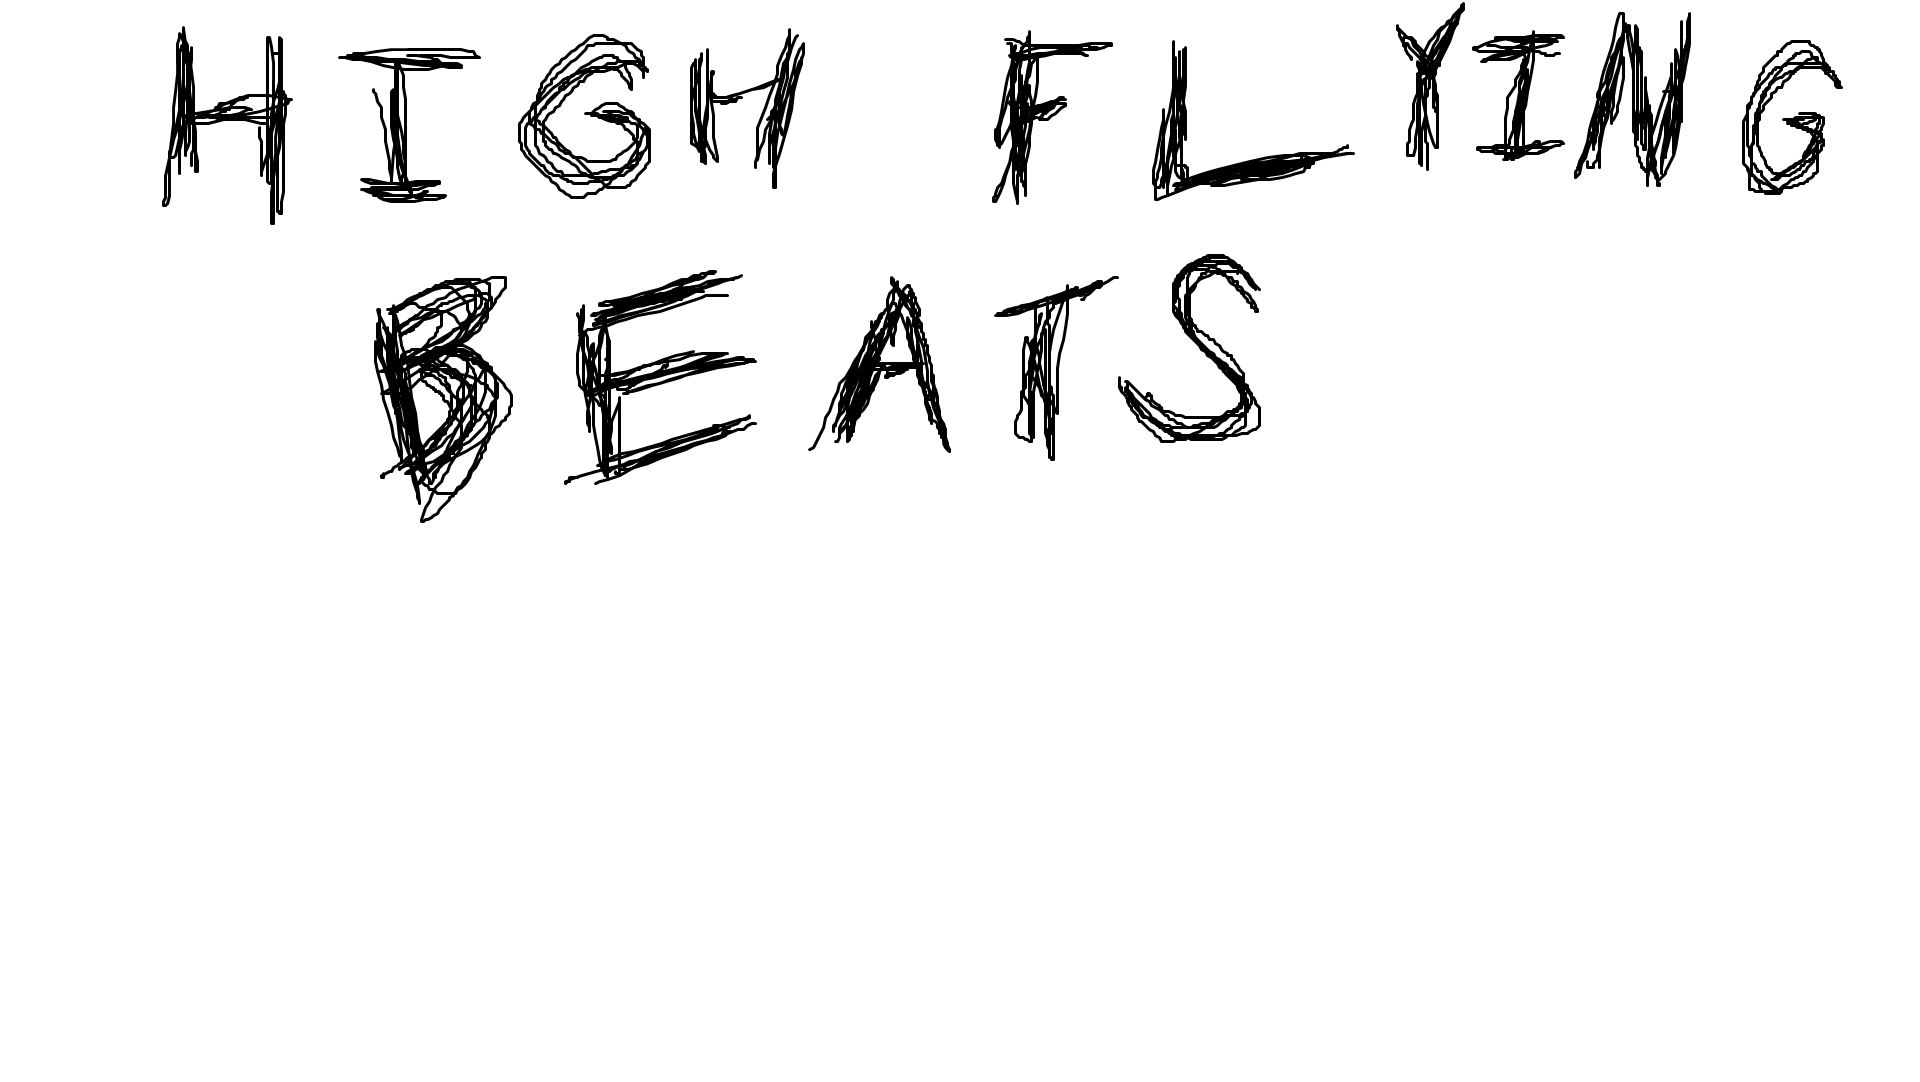 HIGH FLYING
BEATS